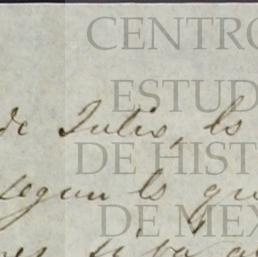 CENTRO
ESTUD
de Julio, lo
DE HIST
segun lo que
DE MEX